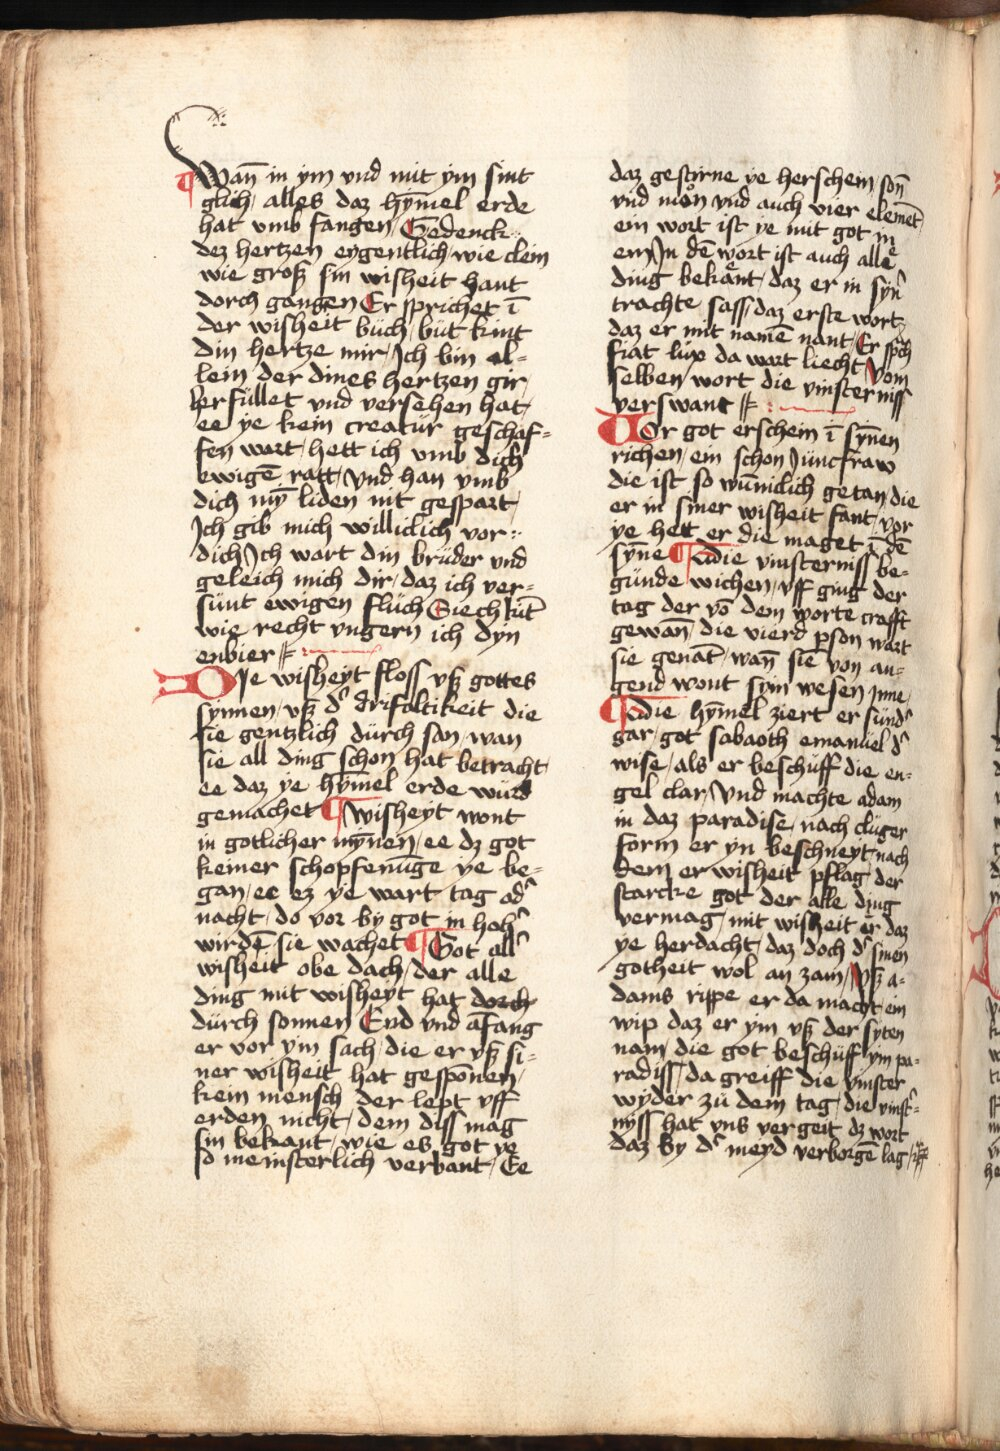 Wan̄ in ym vnd mit ym sint
glich, alles daz hȳmel erde
hat vmb fangen, Gedenck
dez hertzen eygentlich, wie clein
wie groß sin wisheit hant
dorch gangen Er sprichet ī
der wisheit bůch, bůt kint
din hertze mir, Ich bin al-
lein der dines hertzen gir
herfüllet vnd versehen hat,
ee ye kein creatůr geschaf-
fen wart, hett ich vmb dich
ewigē ratt, Vnd han vmb
dich mȳ liden nit gespart,
Ich gib mich williclich vor
dich, Ich wart din brůder vnd
geleich mich dir, daz ich ver-
sünt ewigen flůch Siech kūt
wie recht vngern ich dyn
enbier
DIe wisheyt floss vß gottes
synnen, vß d' drifaltikeit die
sie gentzlich dürch son, wan
sie all ding schon hat betracht,
ee daz ye hȳmel erde würd
gemachet Wisheyt wont
in gotlicher mȳnen, ee dz got
keiner schopfenūge ye be-
gan, ee ez ye wart tag od'
nacht, do vor by got in hoh'
wirdē sie wachet Got all'
wisheit obe dach, der alle
ding mit wisheyt hat dorch
dürch sonnen End vnd āfang
er vor ym sach, die er vß si-
ner wisheit hat gesponen,
kein mensch der lept vff
erden nicht, dem diss mag
sin bekant, wie es got ye
so meinsterlich verbant, Ee
daz gestirne ye herschem, son̄
vnd mon vnd auch vier elemēt
ein wort ist ye mit got in
em, In dē wort ist auch alle
ding bekāt, daz er in syn'
trachte sass, daz erste wort
daz er mit namē nant, Er spch
fiat lux da wart liecht, Vom
selben wort die vinsterniss
verswant
VOr got erschein ī syn̄en
richen, ein schon Juncfraw
die ist so wūniclich getan, die
er in siner wisheit fant, vor
ye hett er die maget ī dē
syn̄e Die vinsterniss be-
günde wichen, vff ging der
tag der vō dem worte crafft
gewan̄, die vierd pson wart
sie genāt, wan̄ sie von an-
gend wont sym wesen Jnne,
Die hȳmel ziert er sünd'
gar, got sabaoth emanuel d'
wise, als er beschůff die en-
gel clar, Vnd machte adam
in daz paradise, nach clůger
form er yn beschneyt, nach
dem er wisheit pflag, der
starcke got der alle ding
vermag, mit wisheit er daz
ye herdacht, daz doch d' sinen
gotheit wol an zam, Vß a-
dams rippe er da macht ein
wip daz er ym vß der syten
nam, die got beschůff ym pa-
radiss, da greiff die vinster
wyder zů dem tag, die vinst'-
nyss hat vns vergeit dz wort
daz by d' meyd verborgē lag,